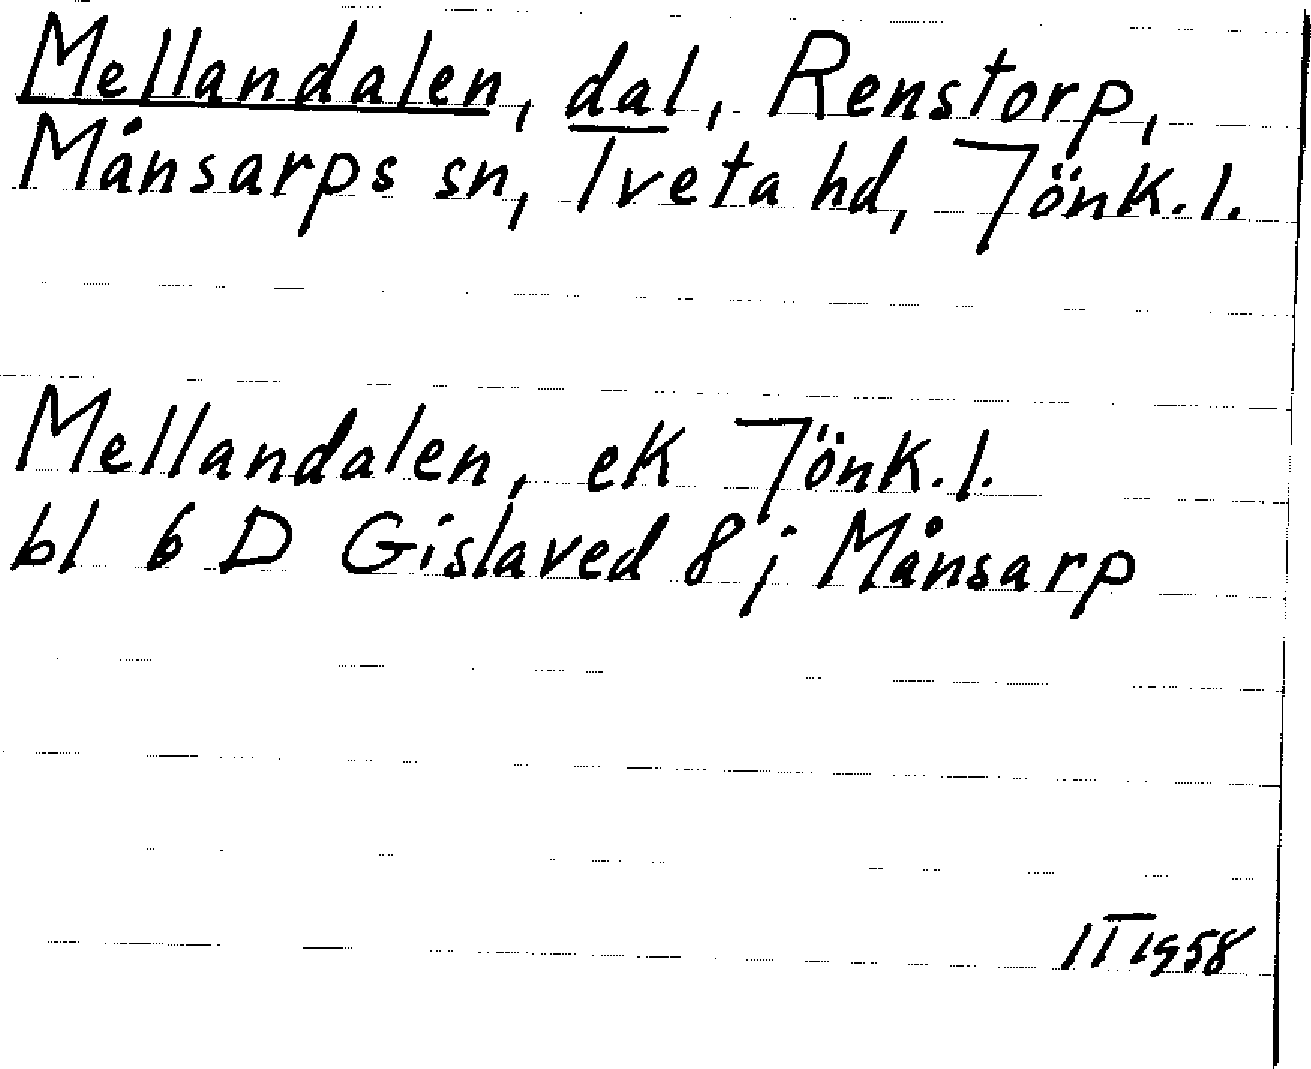 Mellandalen, dal, Renstorp,
Månsarps sn, Tveta hd, Jönk. l.
Mellandalen, ek Jönk. l.
bl 6 D Gislaved 8 j Månsarp
IT 1958